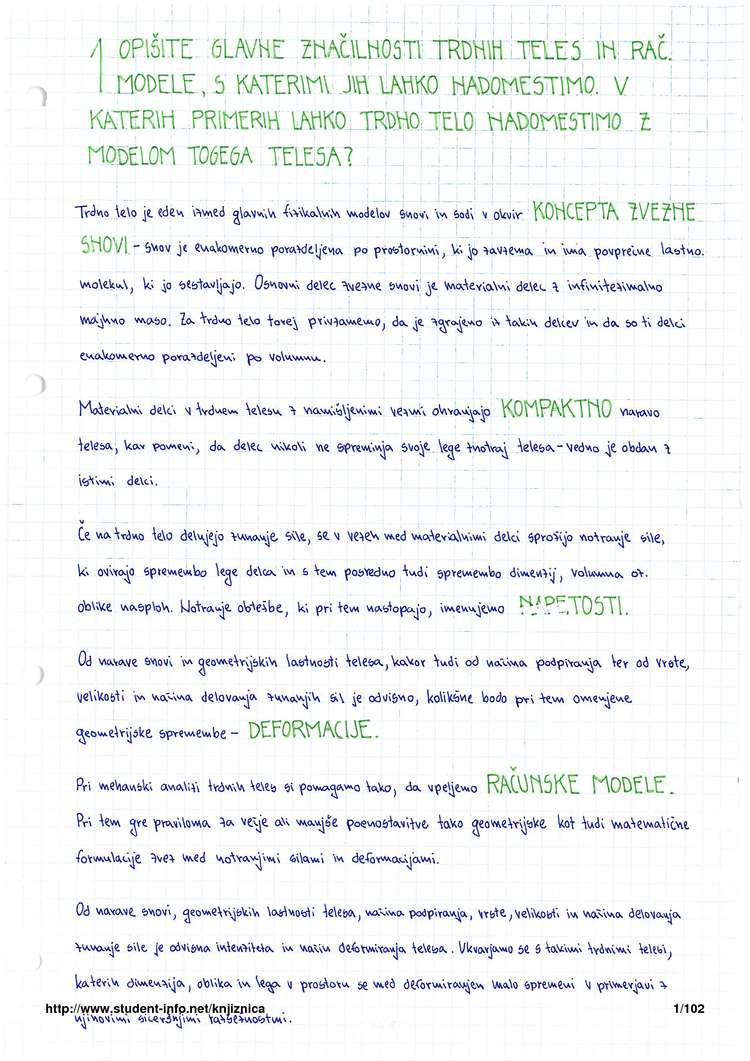 1 OPIŠITE GLAVNE ZNAČILNOSTI TRDNIH TELES IN RAČ.
MODELE, S KATERIMI JIH LAHKO NADOMESTIMO. V
KATERIH PRIMERIH LAHKO TRDNO TELO NADOMESTIMO Z
MODELOM TOGEGA TELESA?
Trdno telo je eden izmed glavnih fizikalnih modelov snovi in sodi v okvir KONCEPTA ZVEZNE
SNOVI - snov je enakomerno porazdeljena po prostornini, ki jo zavzema in ima povprečne lastno.
molekul, ki jo sestavljajo. Osnovni delec zvezne snovi je materialni delec z infinitezimalno
majhno maso. Za trdno telo torej privzamemo, da je zgrajeno iz takih delcev in da so ti delci
enakomerno porazdeljeni po volumnu.
Materialni delci v trdnem telesu z namišljenimi vezmi ohranjajo KOMPAKTNO naravo
telesa, kar pomeni, da delec nikoli ne spreminja svoje lege znotraj telesa - vedno je obdan z
istimi delci.
Če na trdno telo delujejo zunanje sile, se v vezeh med materialnimi delci sprožijo notranje sile,
ki ovirajo spremembo lege delca in s tem posredno tudi spremembo dimenzij, volumna oz.
oblike nasploh. Notranje obtežbe, ki pri tem nastopajo, imenujemo NAPETOSTI.
Od narave snovi in geometrijskih lastnosti telesa, kakor tudi od načina podpiranja ter od vrste,
velikosti in načina delovanja zunanjih sil je odvisno, kolikšne bodo pri tem omenjene
geometrijske spremembe - DEFORMACIJE.
Pri mehanski analizi trdnih teles si pomagamo tako, da vpeljemo RAČUNSKE MODELE.
Pri tem gre praviloma za večje ali manjše poenostavitve tako geometrijske kot tudi matematične
formulacije zvez med notranjimi silami in deformacijami.
Od narave snovi, geometrijskih lastnosti telesa, načina podpiranja, vrste, velikosti in načina delovanja
zunanje sile je odvisna intenziteta in način deformiranja telesa. Ukvarjamo se s takimi trdnimi telesi,
katerih dimenzija, oblika in lega v prostoru se med deformiranjem malo spremeni v primerjavi z
njihovimi siceršnjimi razsežnostmi.
http://www.student-info.net/knjiznica 1/102